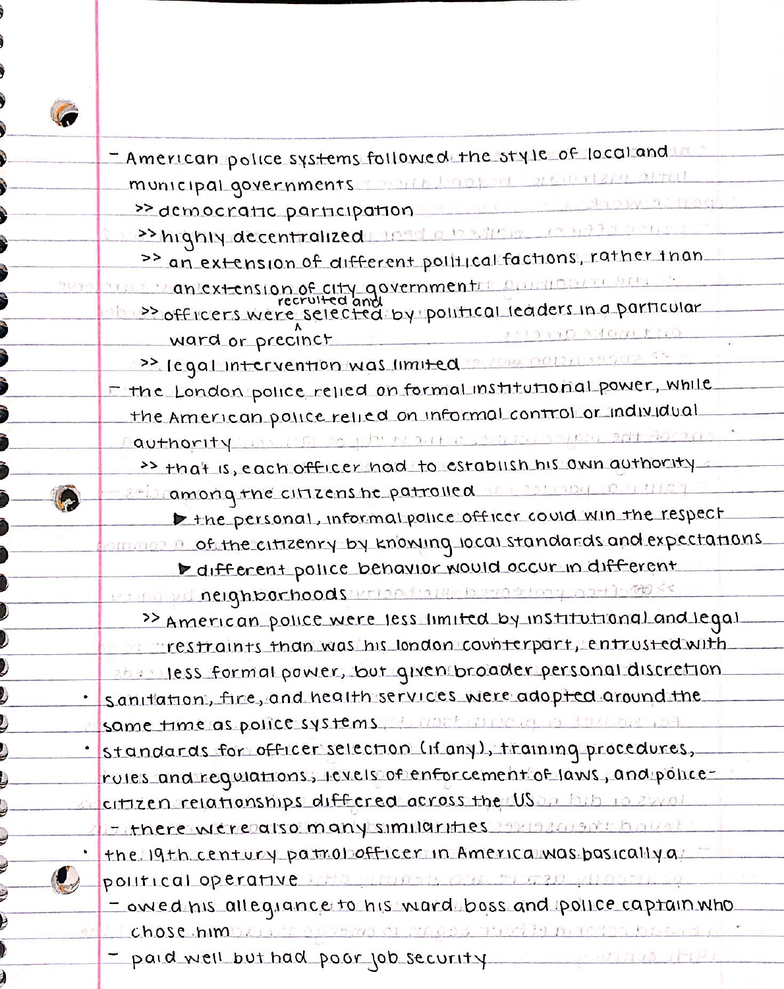 - American police systems followed the style of local and
municipal governments
>> democratic participation
>> highly decentralized
>> an extension of different political factions, rather than
an extension of city government
recruited and
>> officers were ^ selected by political leaders in a particular
ward or precinct
>> legal intervention was limited
- the London police relied on formal institutional power, while
the American police relied on informal control or individual
authority
>> that is, each officer had to establish his own authority
among the citizens he patrolled
▶ the personal, informal police officer could win the respect
of the citizenry by knowing local standards and expectations
▶ different police behavior would occur in different
neighborhoods
>> American police were less limited by institutional and legal
restraints than was his london counterpart, entrusted with
less formal power, but given broader personal discretion
• sanitation, fire, and health services were adopted around the
same time as police systems
• standards for officer selection (if any), training procedures,
rules and regulations, levels of enforcement of laws, and police-
citizen relationships differed across the US
- there were also many similarities
• the 19th century patrol officer in America was basically a
political operative
- owed his allegiance to his ward boss and police captain who
chose him
- paid well but had poor job security